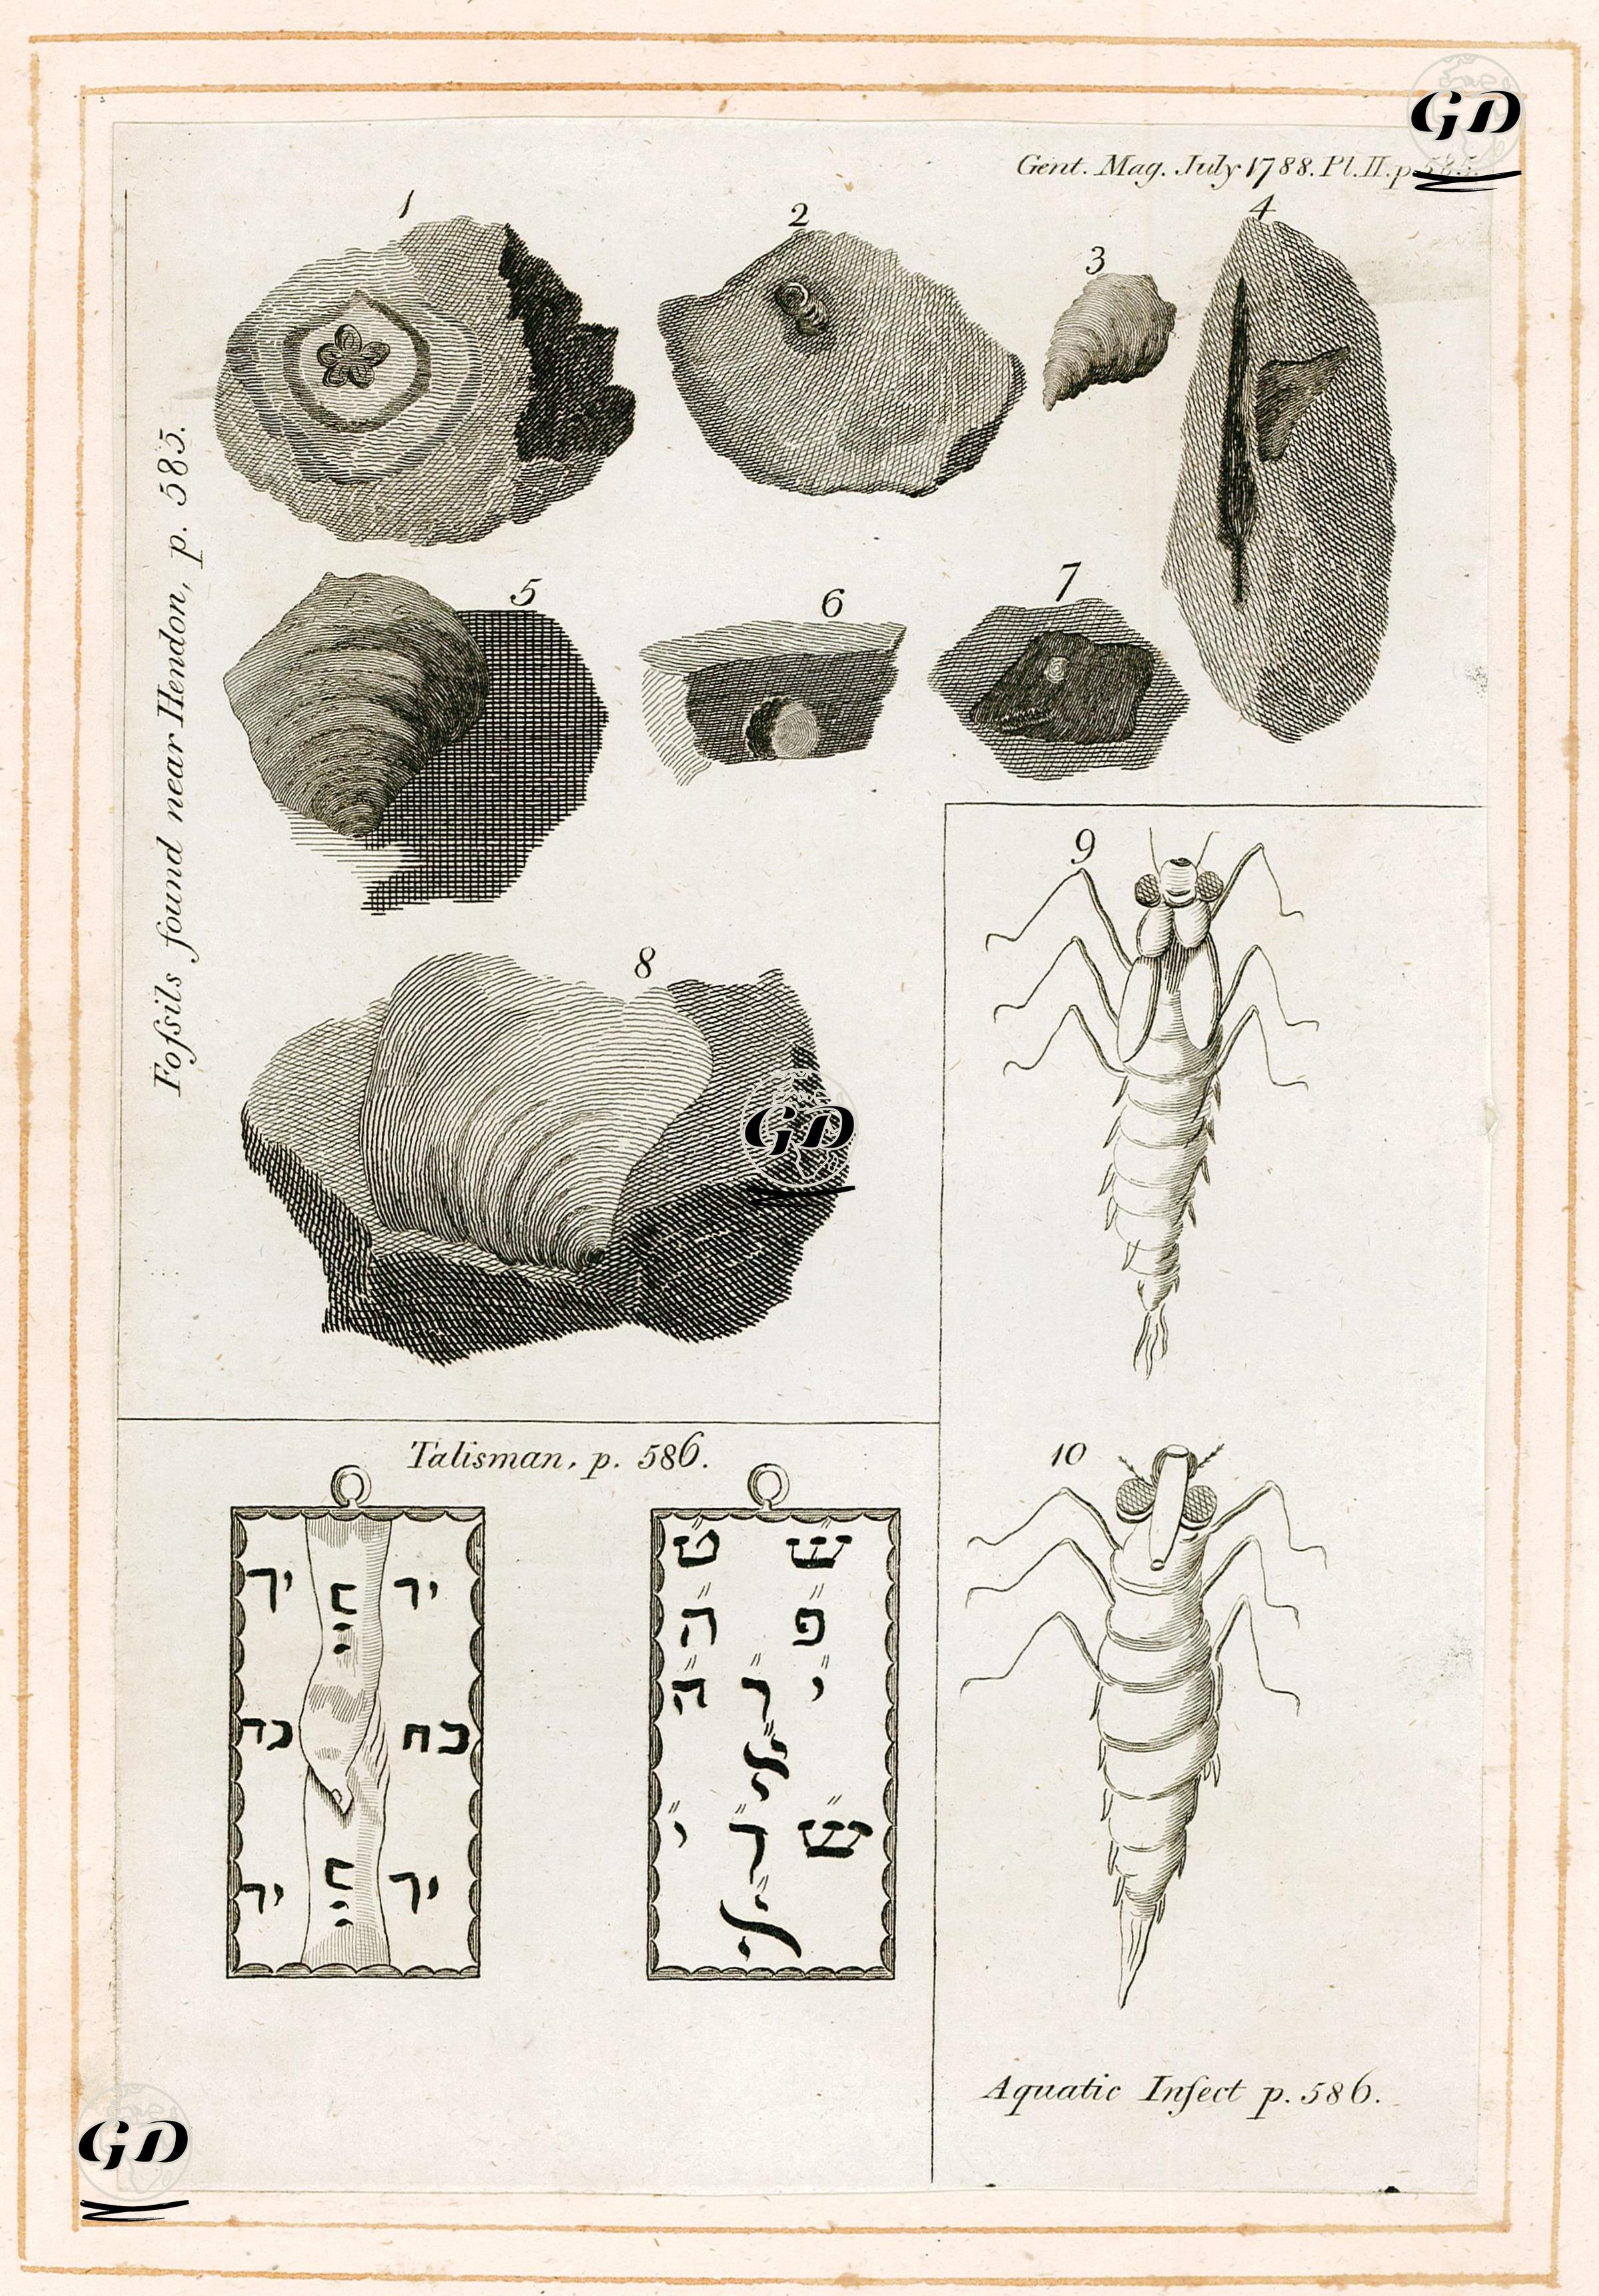 GD
Gent. Mag. July 1788. Pl. II. p. 585.
1
2
3
4
Foſsils found near Hendon, p. 585.
5
6
7
8
GD
9
10
Aquatic Inſect p. 586.
Talisman, p. 586.
חיי
כח
חיי
ש ט
פ ה
י ר ה
ש ד י
GD